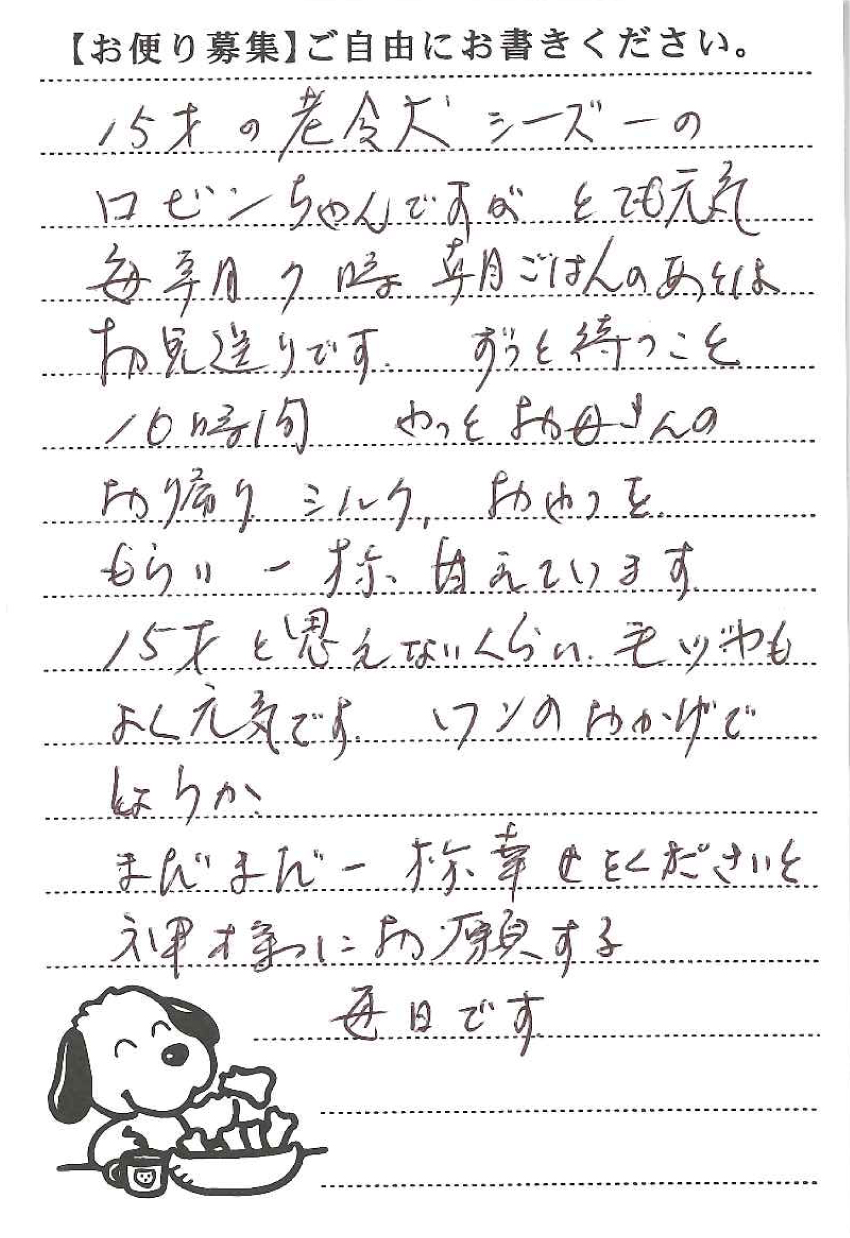 【お便り募集】ご自由にお書きください。
15才の老令犬シーズーの
ロビンちゃんですが とても元気
毎朝7時 朝ごはんのあとは
お見送りです。 ずっと待つこと
10時間 やっとお母さんの
お帰り ミルク、おやつを
もらい 一杯 甘えています
15才と思えないくらい 毛ヅヤも
よく元気です。 ワンのおかげで
しょうか、
まだまだ一杯幸せをくださいと
神様にお願する
毎日です。